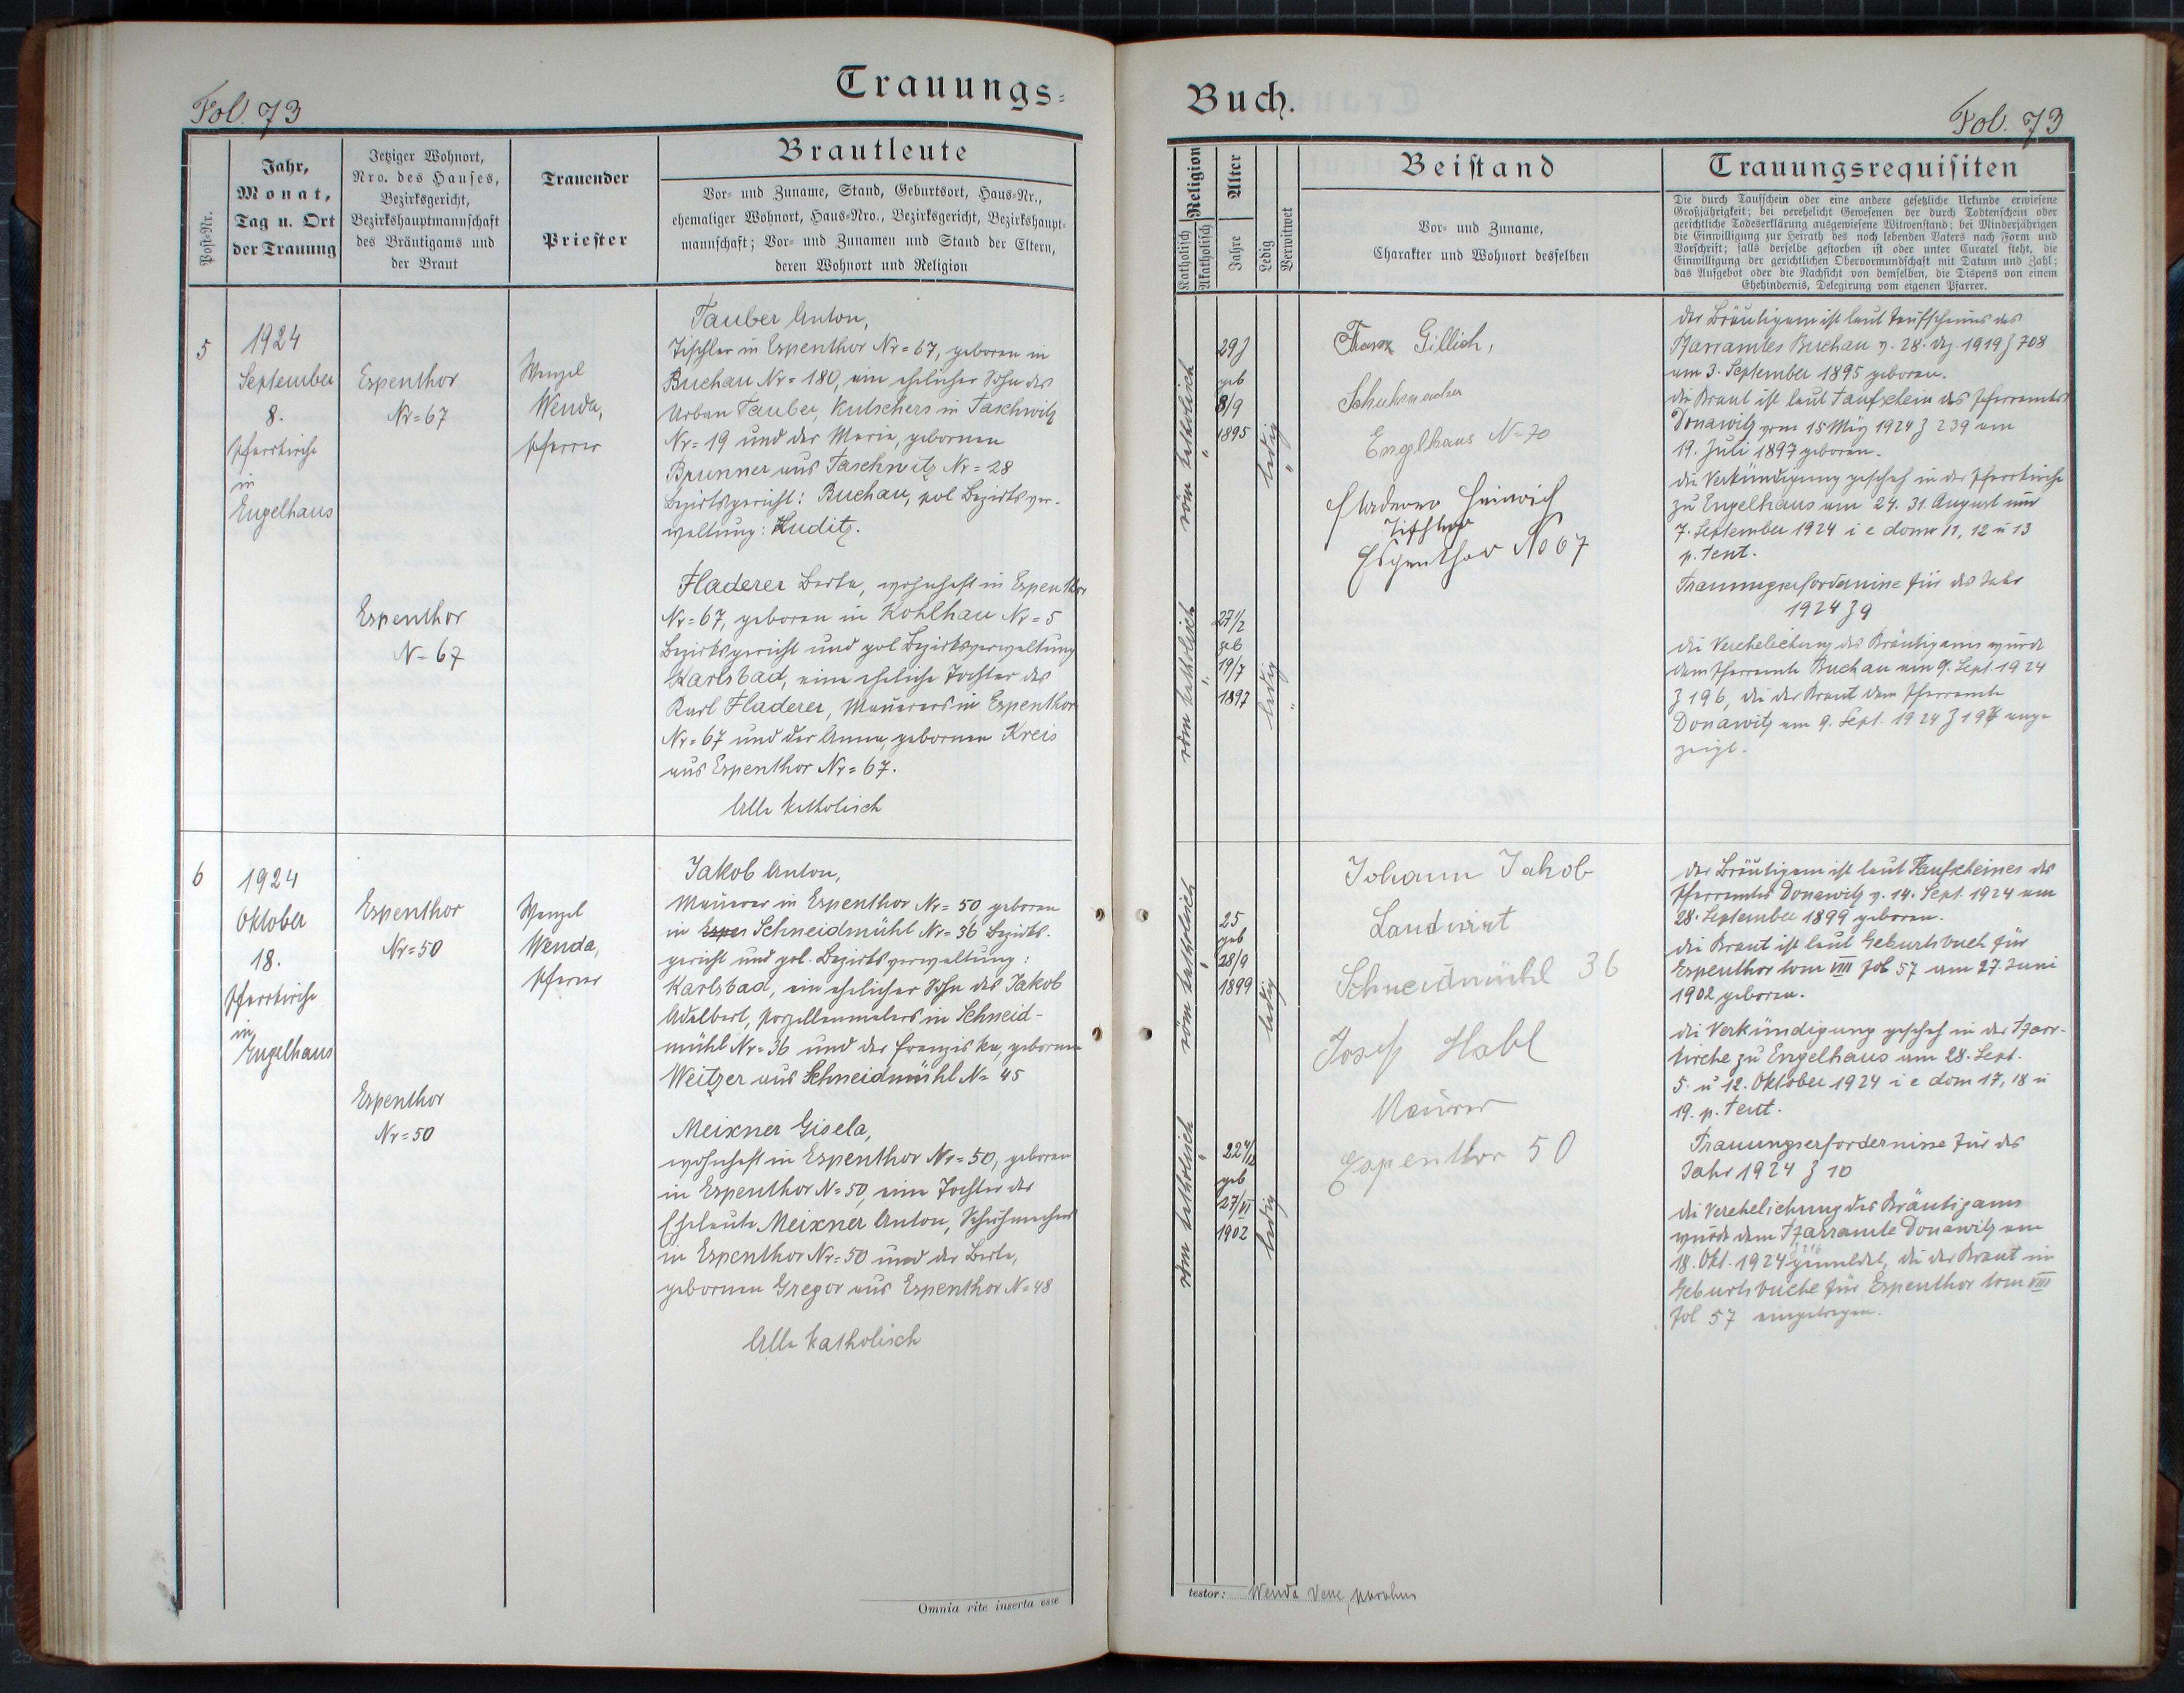 Trauungs=
Fol. 73
Post=Nr.
Jahr,
Monat,
Tag u. Ort
der Trauung
Jetziger Wohnort,
Nro. des Hauses,
Bezirksgericht,
Bezirkshauptmannschaft
des Bräutigams und
der Braut
Trauender
Priester
Brautleute
Vor= und Zuname, Stand, Geburtsort, Haus=Nr.,
ehemaliger Wohnort, Haus=Nro., Bezirksgericht, Bezirkshaupt=
mannschaft; Vor= und Zunamen und Stand der Eltern,
deren Wohnort und Religion
5
1924
September
8.
Pfarrkirche
in
Engelhaus
Espenthor
Nr = 67
Wenzel
Wenda,
Pfarrer
Tauber Anton,
Tischler in Espenthor Nr = 67, geboren in
Buchau Nr = 180, ein ehelicher Sohn des
Urban Tauber, Kutschers in Taschwitz
Nr = 19 und der Maria, gebornen
Brunner aus Taschwitz Nr = 28
Bezirksgericht: Buchau, pol Bezirksver-
waltung: Luditz.
Espenthor
N = 67
Fladerer Berta, wohnhaft in Espenthor
Nr = 67, geboren in Kohlhau Nr = 5
Bezirksgericht und pol Bezirksverwaltung
Karlsbad, eine eheliche Tochter des
Karl Fladerer, Maurers in Espenthor
Nr = 67 und der Anna, gebornen Kreis
aus Espenthor Nr = 67.
Alle katholisch
6
1924
Oktober
18.
Pfarrkirche
in
Engelhaus
Espenthor
Nr = 50
Wenzel
Wenda,
Pfarrer
Jakob Anton,
Maurer in Espenthor Nr = 50 geboren
in Espen Schneidmühl Nr = 36 Bezirks-
gericht und pol. Bezirksverwaltung:
Karlsbad, ein ehelicher Sohn des Jakob
Adalbert, Porzellanmalers in Schneid-
mühl Nr = 36 und der Franziska, gebornen
Weitzer aus Schneidmühl N = 45
Espenthor
Nr = 50
Meixner Gisela,
wohnhaft in Espenthor Nr = 50, geboren
in Espenthor N = 50, eine Tochter der
Eheleute Meixner Anton, Schuhmachers
in Espenthor Nr = 50 und der Berta,
gebornen Gregor aus Espenthor N = 48
Alle katholisch
Omnia rite inserta esse
Buch.
Fol. 73
Religion
Katholisch
Akatholisch
Alter
Jahre
Ledig
Verwitwet
Beistand
Vor= und Zuname,
Charakter und Wohnort desselben
Trauungsrequisiten
Die durch Taufschein oder eine andere gesetzliche Urkunde erwiesene
Großjährigkeit; bei verehelicht Gewesenen der durch Todtenschein oder
gerichtliche Todeserklärung ausgewiesene Witwenstand; bei Minderjährigen
die Einwilligung zur Heirath des noch lebenden Vaters nach Form und
Vorschrift; falls derselbe gestorben ist oder unter Curatel steht, die
Einwilligung der gerichtlichen Obervormundschaft mit Datum und Zahl;
das Aufgebot oder die Nachsicht von demselben, die Dispens von einem
Ehehindernis, Delegirung vom eigenen Pfarrer.
röm katholisch
29 J
geb
3/9
1895
ledig
Franz Gillich,
Schuhmacher
Engelhaus N = 70
Fladerer Heinrich
Tischler
Espenthor No 67
der Bräutigam ist laut Taufscheines des
Pfarramtes Buchau v. 28. Dez. 1919 Z 708
am 3. September 1895 geboren.
die Braut ist laut Taufschein des Pfarramtes
Donawitz vom 15 Mai 1924 Z 239 am
19. Juli 1897 geboren.
die Verkündigung geschah in der Pfarrkirche
zu Engelhaus am 24. 31. August und
7. September 1924 i e dom 11, 12 u 13
p. Pent.
Trauungserfordernisse für das Jahr
1924 Z 9
die Verehelichung des Bräutigams wurde
dem Pfarramte Buchau am 9. Sept. 1924
Z 196, die der Braut dem Pfarramte
Donawitz am 9. Sept. 1924 Z 197 ange-
zeigt.
röm katholisch
27 1/2
geb
19/7
1897
ledig
röm katholisch
25
geb
28/9
1899
ledig
Johann Jakob
Landwirt
Schneidmühl 36
Josef Habl
Maurer
Espenthor 50
der Bräutigam ist laut Taufscheines des
Pfarramtes Donawitz v. 14. Sept. 1924 am
28. September 1899 geboren.
die Braut ist laut Geburtsbuch für
Espenthor tom VIII fol 57 am 27. Juni
1902 geboren.
die Verkündigung geschah in der Pfarr-
kirche zu Engelhaus am 28. Sept.
5. u 12. Oktober 1924 i e dom 17, 18 u
19. p. Pent.
Trauungserfordernisse für das
Jahr 1924 Z 10
die Verehelichung des Bräutigams
wurde dem Pfarramte Donawitz am
18. Okt. 1924 gemeldet, die der Braut im
Geburtsbuche für Espenthor tom VIII
fol 57 eingetragen.
röm katholisch
geb
27/VI
1902
ledig
testor: Wenda Venc, parochus